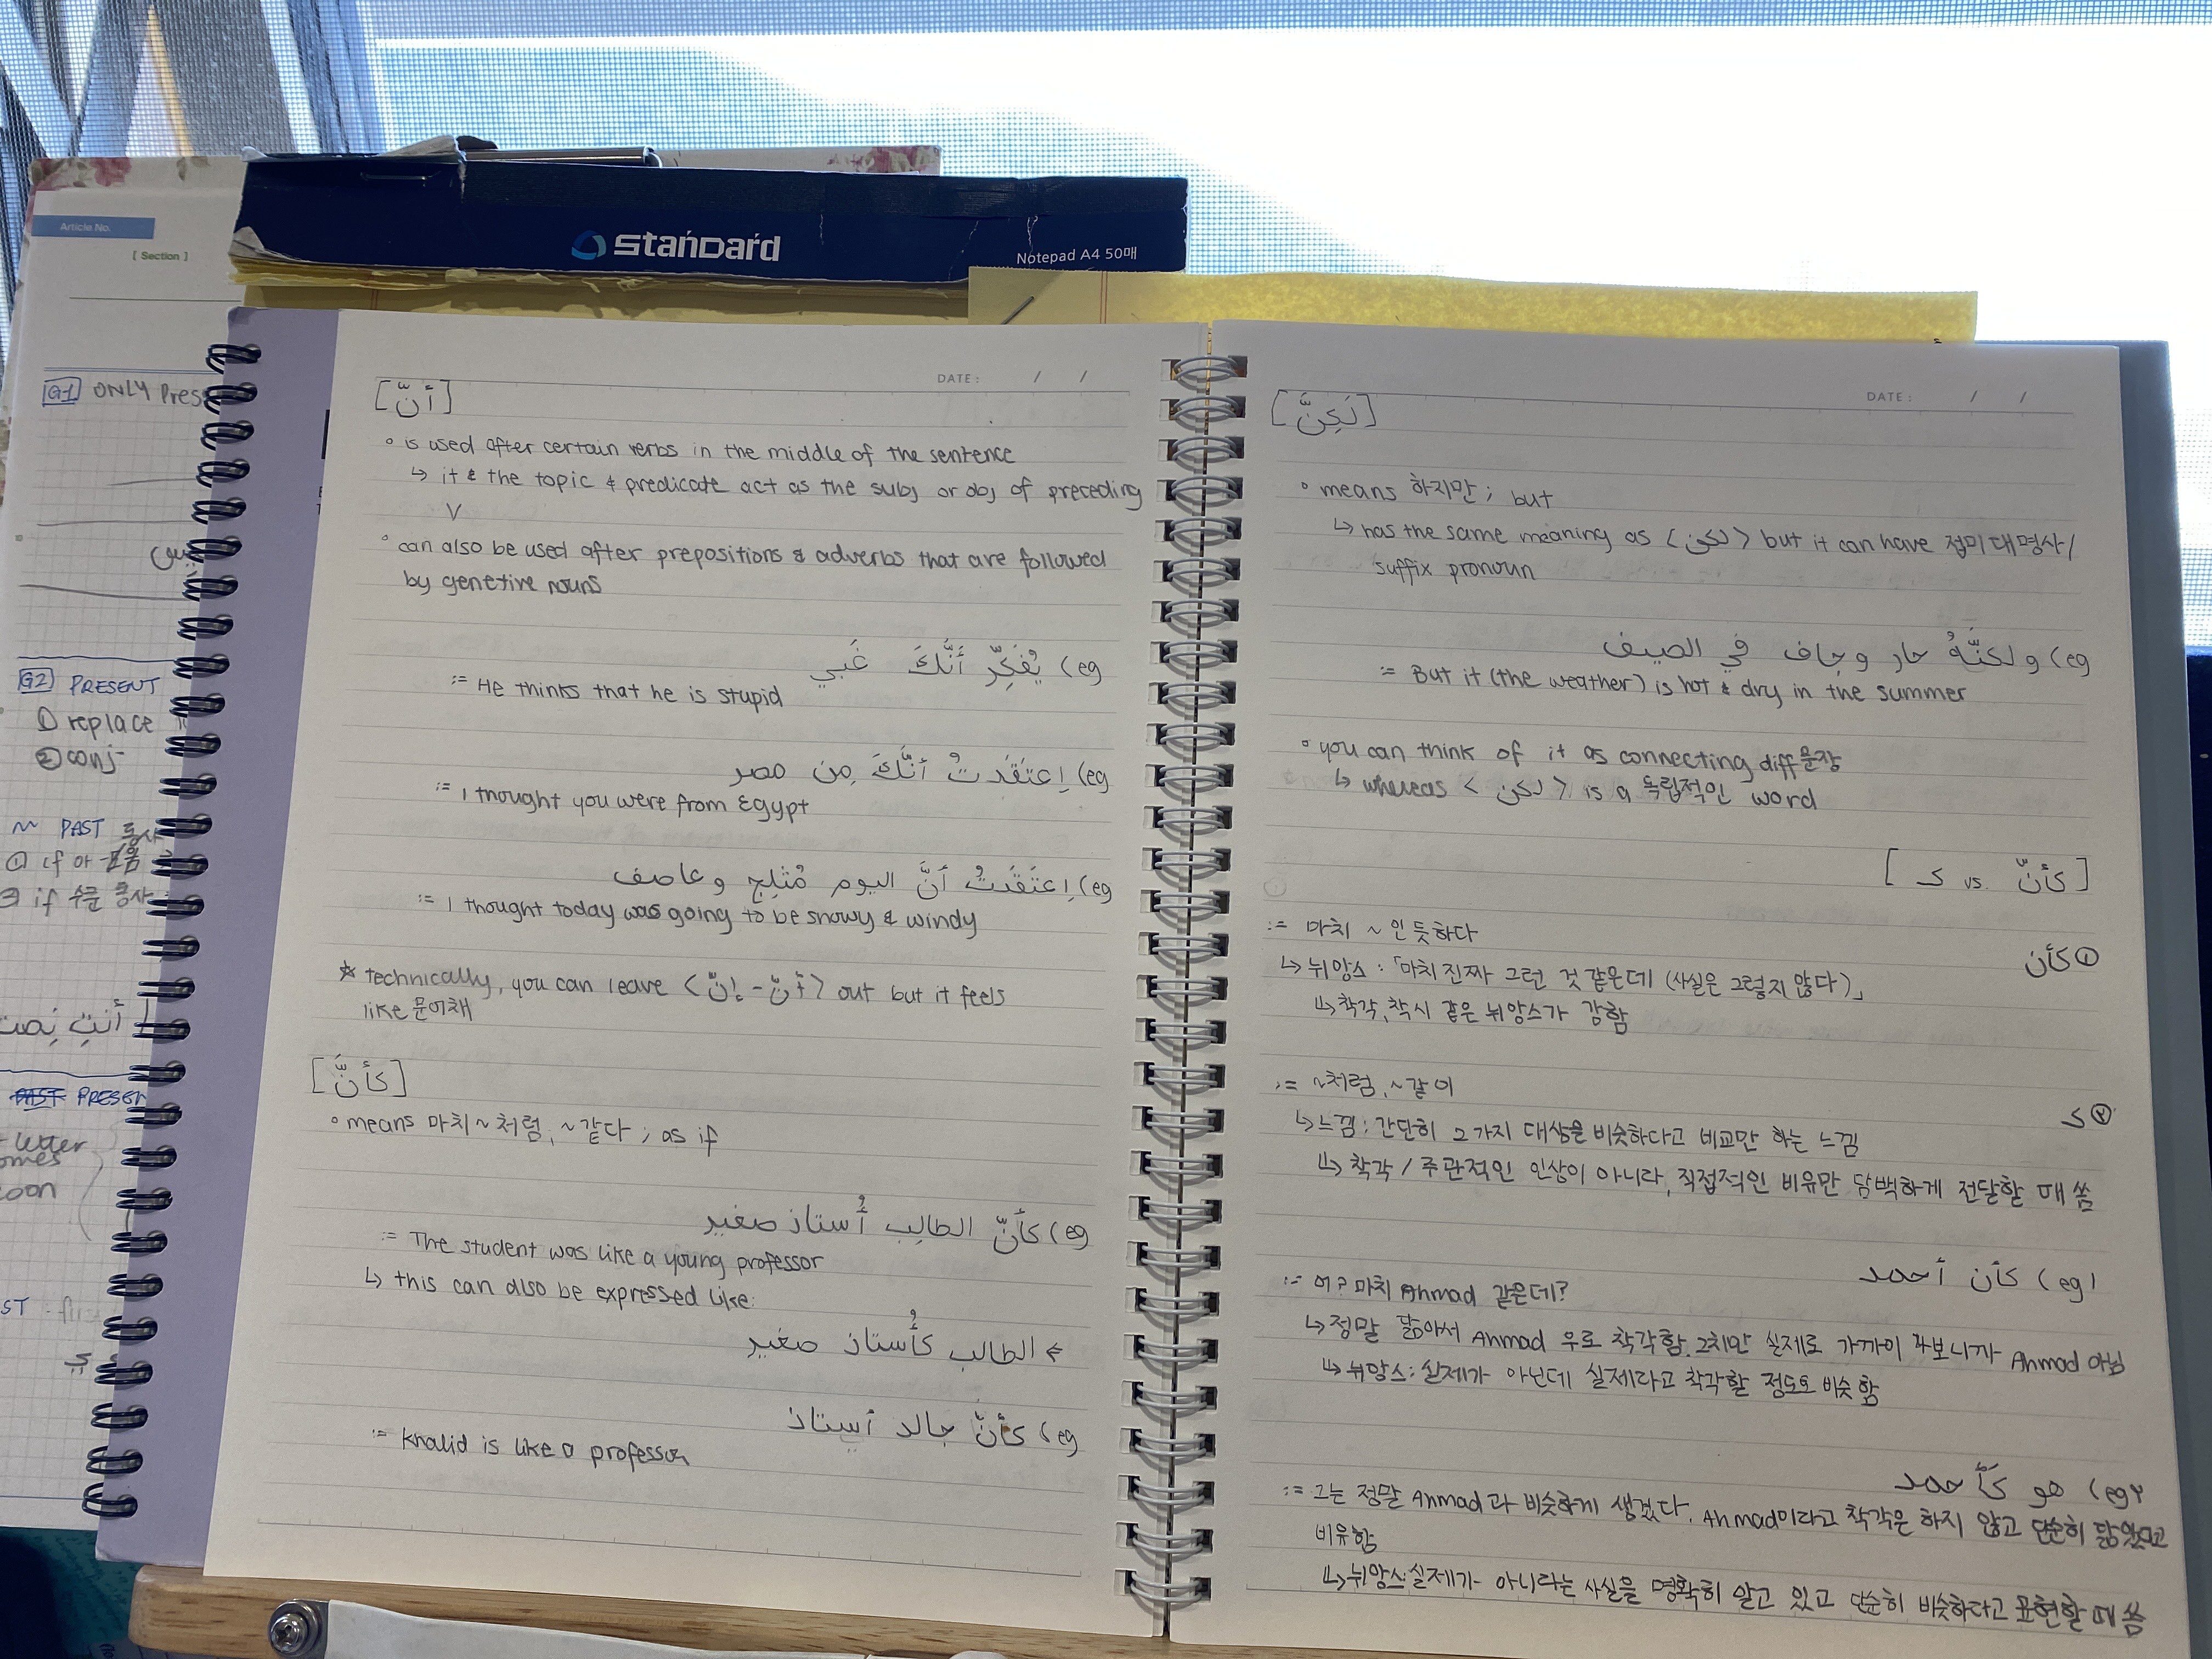 Article No.
[ Section ]
STANDARD
Notepad A4 50매
G1 ONLY Pres
G2 PRESENT
① replace
② conj-
~ PAST 동사
① if 아
② if 수클 동사
أنتِ
PAST PRESEN
letter
omes
oon
ST
DATE : / /
[أنّ]
° is used after certain verbs in the middle of the sentence
↳ it & the topic & predicate act as the subj or obj of preceding
V
° can also be used after prepositions & adverbs that are followed
by genetive nouns
eg) يُفَكِّر أَنَّكَ غَبي
:= He thinks that he is stupid
eg) اِعتَقَدتُ أنَّكَ مِن مصر
:= I thought you were from Egypt
eg) اِعتَقَدتُ أنَّ اليوم مُثلِج وعاصف
:= I thought today was going to be snowy & windy
☆ technically, you can leave <إنّ - أنّ> out but it feels
like 문어체
[كأنَّ]
° means 마치~처럼, ~같다 ; as if
eg) كأنّ الطالِب أُستاذ صغير
:= The student was like a young professor
↳ this can also be expressed like:
⇐ الطالب كأُستاذ صغير
eg) كأنّ جالد أستاذ
:= Khalid is like a professor
DATE : / /
[لَكِنَّ]
° means 하지만 ; but
↳ has the same meaning as <لكن> but it can have 접미대명사/
suffix pronoun
eg) ولكنَّهُ حار وجاف في الصيف
:= But it (the weather) is hot & dry in the summer
° you can think of it as connecting diff 문장
↳ whereas <لكن> is a 독립적인 word
[كأنّ vs. كـ]
① كأن
:= 마치 ~인 듯하다
↳ 뉘앙스 : 「마치 진짜 그런 것 같은데 (사실은 그렇지 않다)」
↳ 착각, 착시 같은 뉘앙스가 강함
② كـ
:= ~처럼, ~같이
↳ 느낌 : 간단히 2가지 대상을 비슷하다고 비교만 하는 느낌
↳ 착각 / 주관적인 인상이 아니라, 직접적인 비유만 담백하게 전달할 때 씀
eg1) كأن أحمد
:= 어? 마치 Ahmad 같은데?
↳ 정말 닮아서 Ahmad 우로 착각함. 그치만 실제로 가까이 가보니까 Ahmad 아님
↳ 뉘앙스 : 실제가 아닌데 실제라고 착각할 정도로 비슷함
eg2) هو كأحمد
:= 그는 정말 Ahmad과 비슷하게 생겼다. Ahmad이라고 착각은 하지 않고 단순히 닮았다고
비유함
↳ 뉘앙스 : 실제가 아니라는 사실을 명확히 알고 있고 단순히 비슷하다고 표현할 때 씀